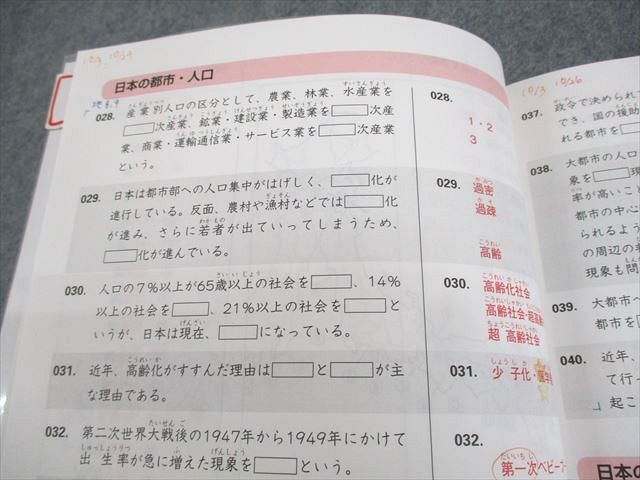 10/3 10/29
日本の都市・人口
028. 産業別人口の区分として、農業、林業、水産業を
□次産業、鉱業・建設業・製造業を□次産
業、商業・運輸通信業・サービス業を□次産業
という。
029. 日本は都市部への人口集中がはげしく、□化が
進行している。反面、農村や漁村などでは□化
が進み、さらに若者が出ていってしまうため、
□化が進んでいる。
030. 人口の7%以上が65歳以上の社会を□、14%
以上の社会を□、21%以上の社会を□と
いうが、日本は現在、□になっている。
031. 近年、高齢化がすすんだ理由は□と□が主
な理由である。
032. 第二次世界大戦後の1947年から1949年にかけて
出生率が急に増えた現象を□という。
028.
1・2
3
029. 過密
過疎
高齢
030. 高齢化社会
高齢社会・超高
超高齢社会
031. 少子化・医学
032.
第一次ベビー
10/3 10/26
037. 政令で決められ
でき、国の援助
れる都市を
038. 大都市の人口
象を□現
率が高いこ
都市の中心
られるよう
の周辺の
現象も問
039. 大都市
都市を
040. 近年、
て行
起こ
日本の